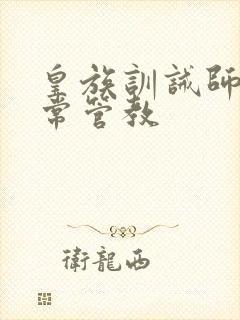 皇族訓誡師
常管教
衛龍西